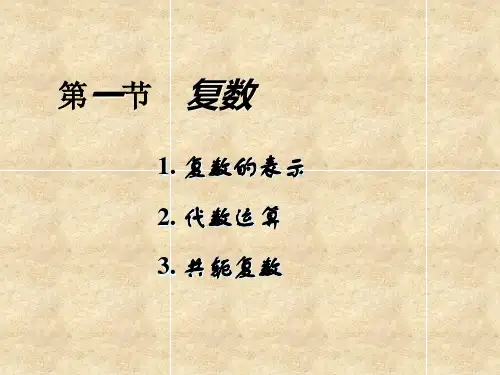 第一节 复数
1. 复数的表示
2. 代数运算
3. 共轭复数